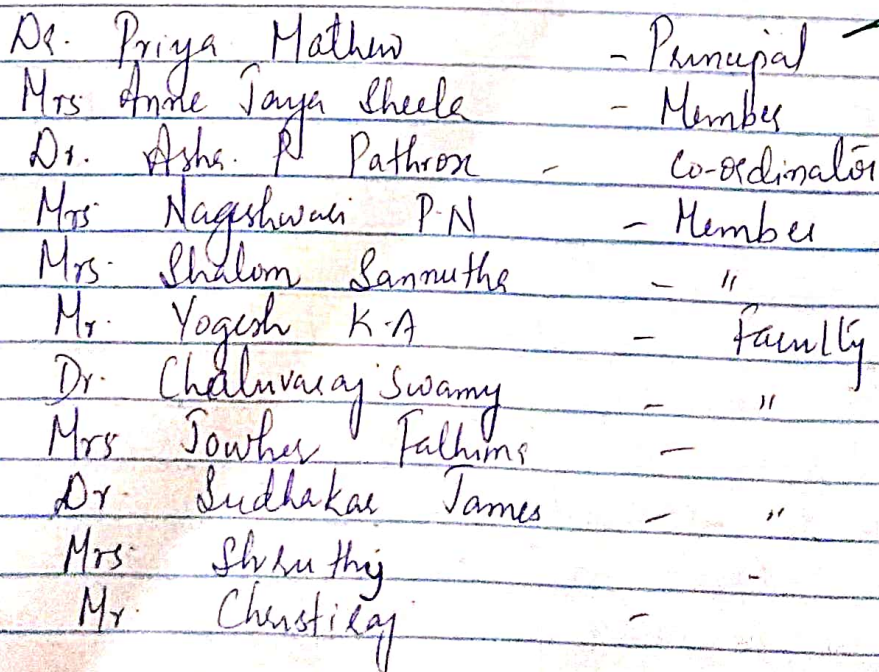 Dr. Priya Mathew - Principal
Mrs Anne Jaya Sheela - Member
Dr. Asha. P Pathrose - Co-ordinator
Mrs Nageshwari P.N - Member
Mrs. Shalom Sannutha - "
Mr. Yogesh K.A - Faculty
Dr. Chaluvaraj Swamy - "
Mrs Jowher Fathima -
Dr. Sudhakar James - "
Mrs. Shruthi -
Mr. Christiraj -